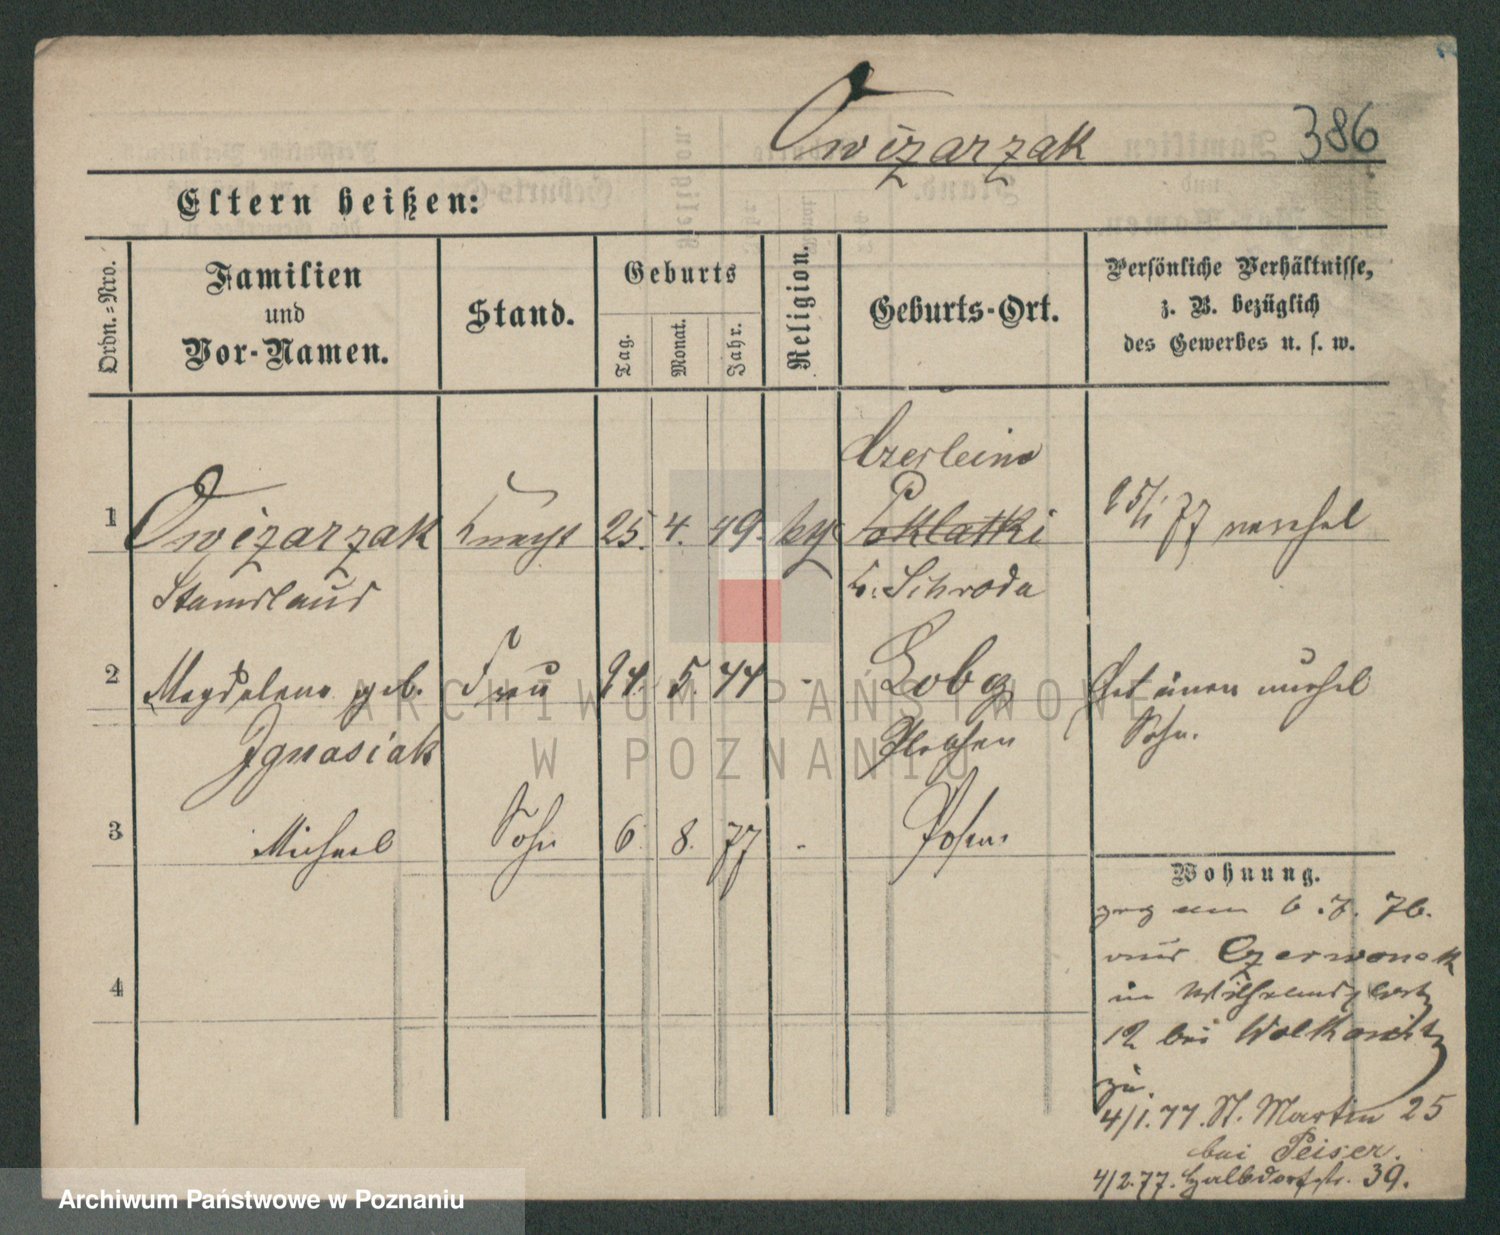 Owizarzak 386
Eltern heißen:
Ordn.-Nro.
Familien
und
Vor-Namen.
Stand.
Geburts
Tag. Monat. Jahr.
Religion.
Geburts-Ort.
Persönliche Verhältnisse,
z. B. bezüglich
des Gewerbes u. s. w.
Czerleino
1 Owizarzak Knecht 25. 4. 49. Poklatki 25/1 77
Stanislaus Schroda
2 Magdalena geb. Frau 24. 5. 44 - Hat einen
Ignasiak Pleschen Sohn.
3 Michael Sohn 6. 8. 77 - Posen.
Wohnung.
zog am 6.7.76.
aus Czerwonak
in Wilhelmsplatz
12 bei Wolkowitz
zu.
4/1.77. St. Martin 25
bei Peiser.
4/2.77. Halbdorfstr. 39.
4
ARCHIWUM PAŃSTWOWE
W POZNANIU
Archiwum Państwowe w Poznaniu